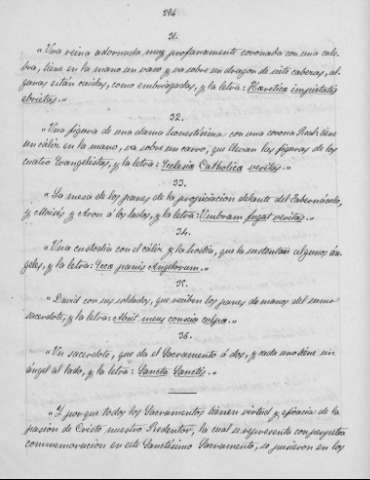 194
31.
"Una reina adornada muy profanamente coronada con una cule-
bra, tiene en la mano un vaso y va sobre un dragon de siete cabezas, al-
gunas están caidas, como embriagadas, y la letra: Hæretica impietatis
ebrietas."
32.
"Una figura de una dama honestísima con una corona Real: tiene
un caliz en la mano, va sobre un carro, que llevan las figuras de los
cuatro Evangelistas, y la letra: Ecclesia Catholica veritas."
33.
"La mesa de los panes de la propiciacion delante del Tabernáculo,
y Moisés y Aron á los lados, y la letra: Umbram fugat veritas."
34.
"Una custodia con el cáliz y la hostia, que la sustentan algunos án-
geles, y la letra: Ecce panis Angelorum."
35.
"David con sus soldados, que reciben los panes de manos del sumo
sacerdote, y la letra: meus conscia culpa."
36.
"Un sacerdote, que da el Sacramento á dos, y cada uno tiene un
ángel al lado, y la letra: Sancta Sanctis."
"Y porque todos los Sacramentos tienen virtud y eficacia de la
pasión de Cristo nuestro Redentor, la cual se representa con perpetua
conmemoracion en este Santísimo Sacramento, se pusieron en los